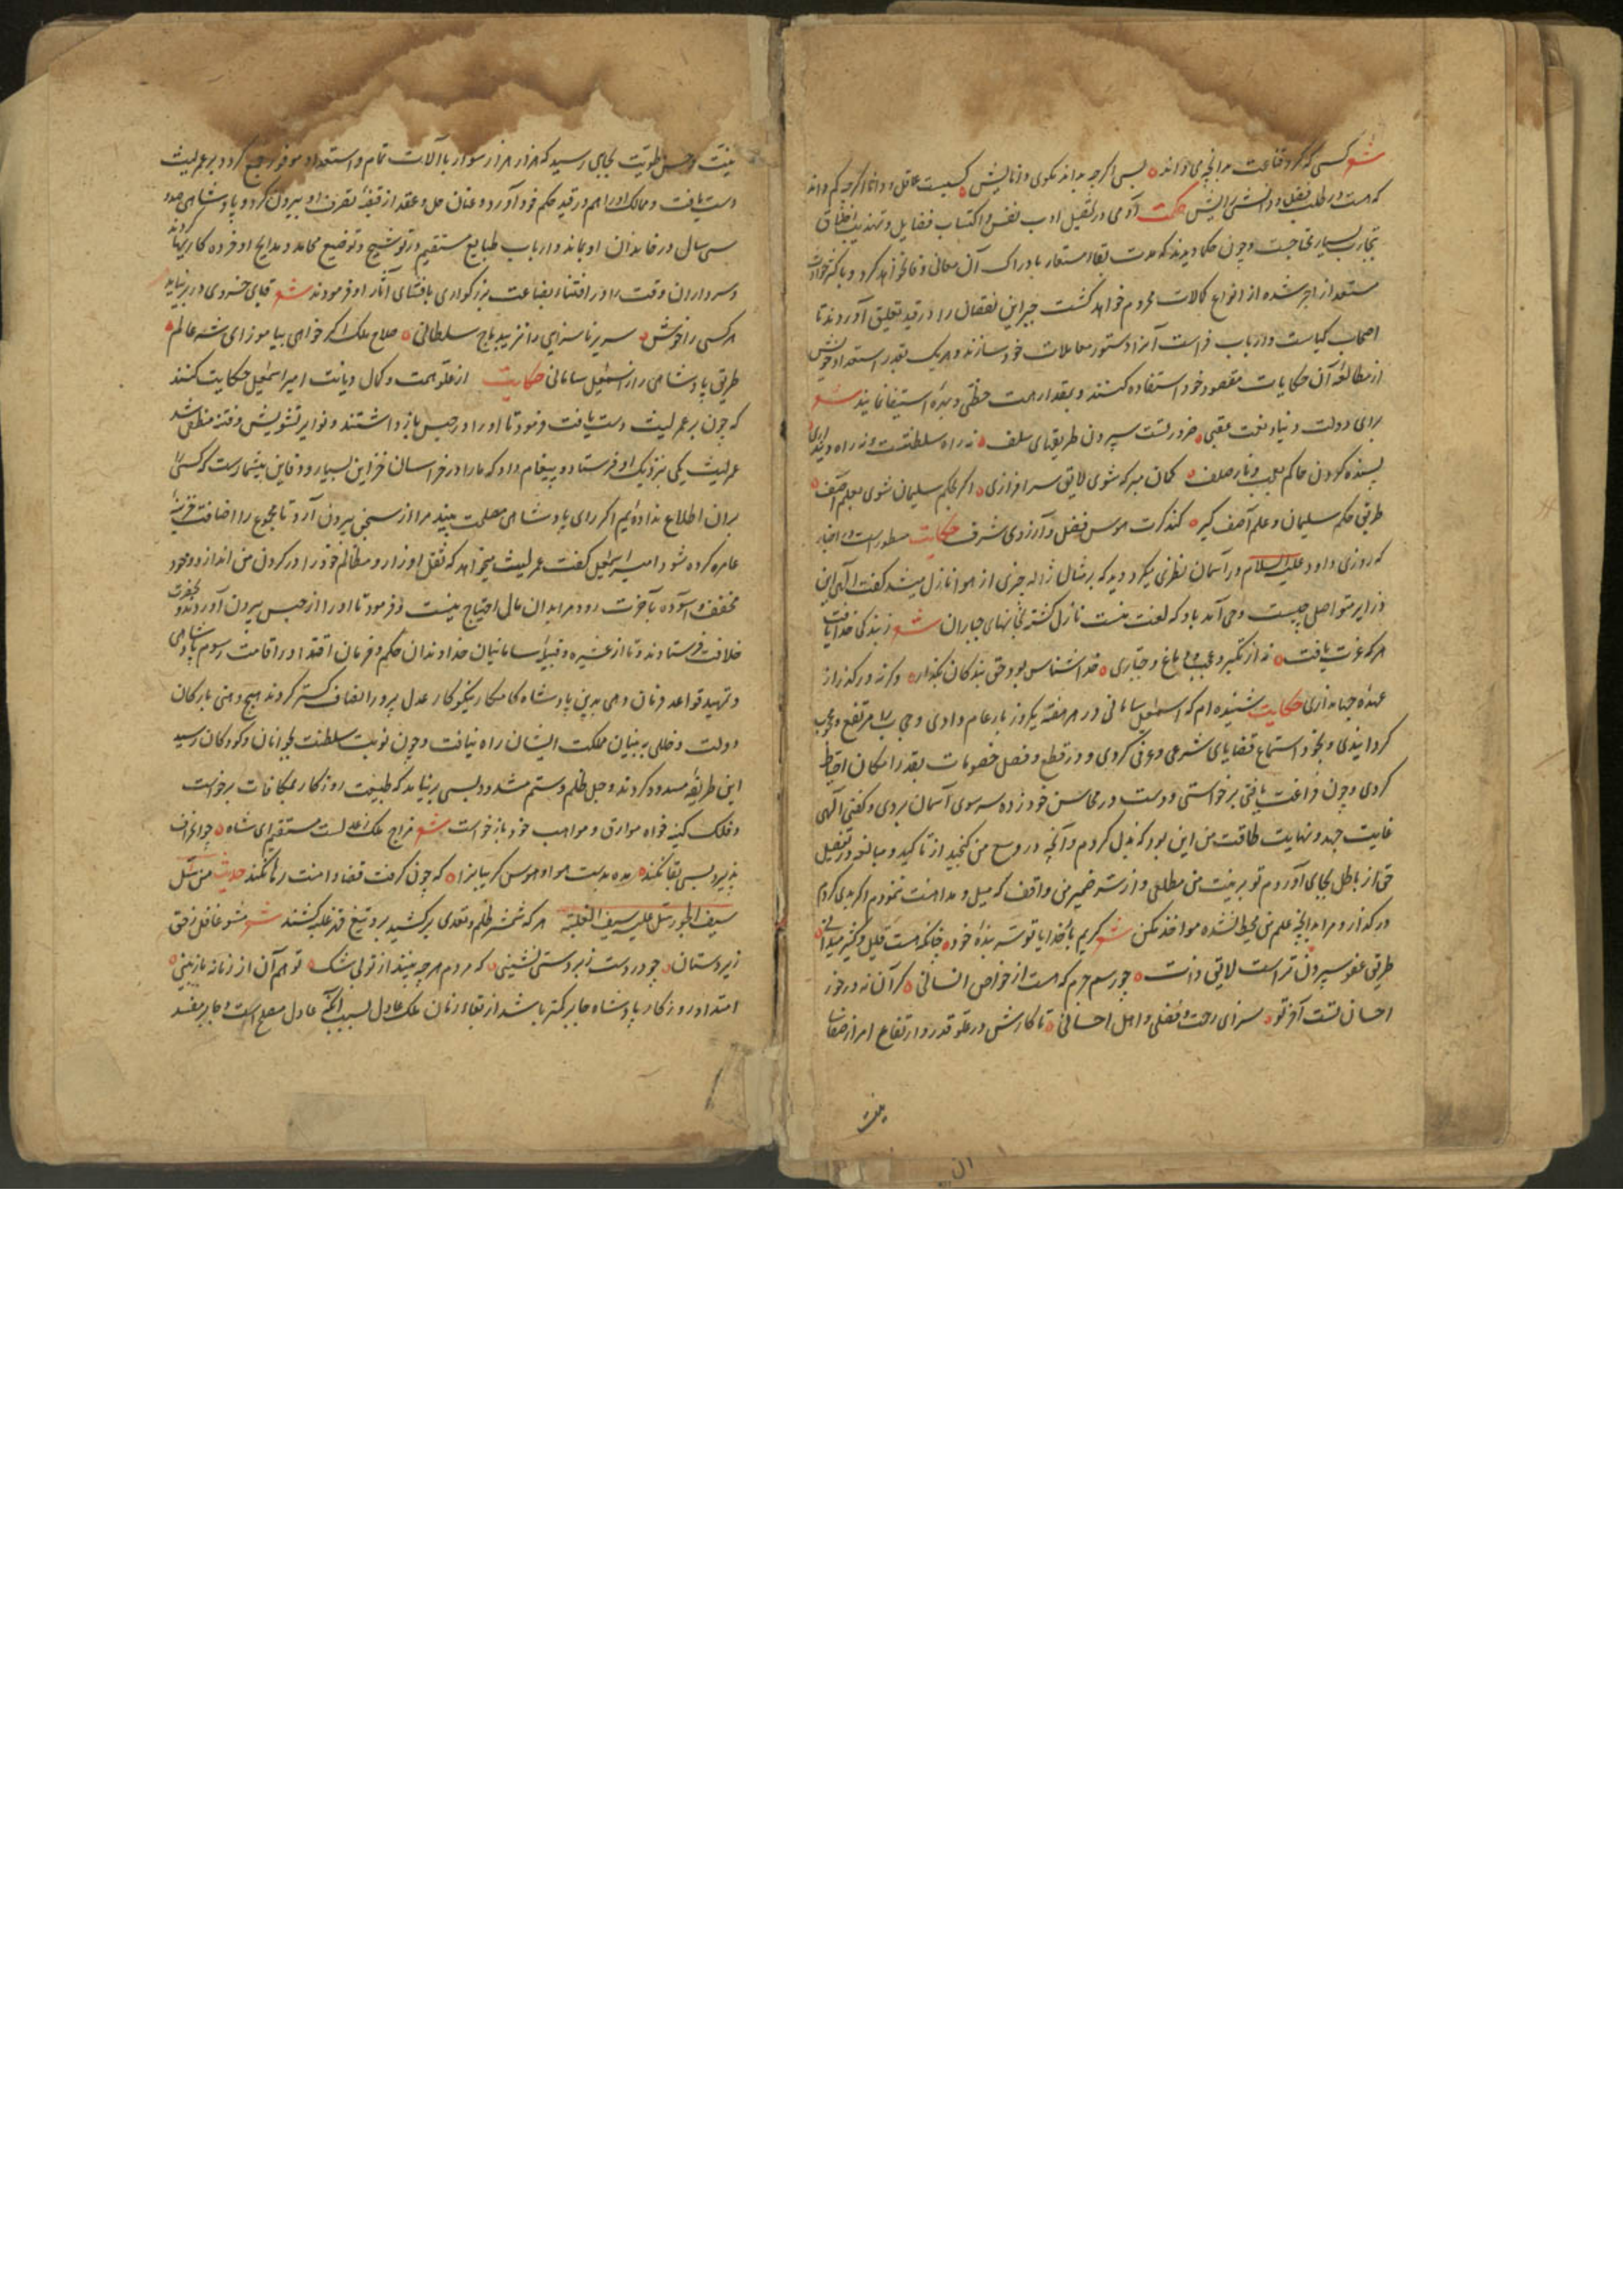 شعر کسی که کرد قناعت بدانچه می داند بسی اگرچه بداند نکوی و انایش کسیست عاقل و دانا اگرچه کم داند
که هست در طلب فضل و دانشی رایش حکمت آدمی در تحصیل ادب نفس و اکتساب فضایل و تهذیب اخلاق
بتجارب بسیار محتاجست و چون حکما دیدند که مدت بقاء مستعار بادراک آن معانی وفا نخواهد کرد و باکثر حوادث
مستعد از انواع کمالات محروم خواهد گشت جبر این نقصان را در قید تعلیق آوردند تا
اصحاب کیاست و ارباب فراست آنرا دستور معاملات خود سازند و هریک بقدر استعداد خویش
از مطالعه آن حکایات مقصود خود استفاده کنند و بمقدار همت حظی و بهره استیفا نمایند شعر
برای دولت دنیا و نعت عقبی ضرورتست سپردن طریقهای سلف نه راه سلطنتست و نه راه دینداری
بسنده کردن حاکم بلعب و نار صلف گمان مبر که شوی لایق سرافرازی اگر بحکم سلیمان شوی بعلم آصف
طریق حکم سلیمان و علم آصف گیر کند کرت هوس فضل و آرزوی شرف حکایت مسطور است در اخبار
که روزی داود علیه السلام در آسمان نظری میکرد دید که بر مثال ژاله چیزی از هوا نازل میشد گفت الهی این
ذرایر متواصل چیست وحی آمد بدو که لعنت منست نازل گشته بخانهای جباران شعر ز بندگی خدا یافت
هرکه عزت یافت نه از تکبر و عجب و دماغ و جباری خدا شناس بود حق بندگان بگذار وگرنه درگذر از
عهده جهانداری حکایت شنیده ام که اسمعیل سامانی در هر هفته یکروز بار عام دادی و حجاب مرتفع و محجب
گردانیدی و بخود استماع قضایای شرعی و عرفی کردی و در قطع و فصل خصومات بقدر امکان احتیاط
کردی و چون فراغت یافتی برخواستی و دست در محاسن خود زده سر سوی آسمان بردی و گفتی الهی
غایت جهد و نهایت طاقت من این بود که بذل کردم و آنچه در وسع من گنجید از تاکید و مبالغه در تفصیل
حق از باطل بجای آوردم تو بر نیت من مطلعی و از سر ضمیر من واقف که میل و مداهنت ننمودم اگر بدی کردم
درگذار و مرا بدانچه علم من محیط نشده مواخذ مکن شعر کریم بار خدایا تو سر بنده خود چنانکه هست قلیل و کثیر میدانی
طریق عفو سپردن تراست لایق ذات چو رسم جرم که هست از خواص انسانی گر آن نه درخور
احسان تست آخر تو سزای رحمت و فضلی و اهل احسانی تا کارش در علو قدر و ارتفاع امر از صفای
نیت
نیت و حسن طویت بجایی رسید که هزار هزار سوار با آلات تمام و استعداد موفور جمع کرد و بر عمرو لیث
دست یافت و ممالک او را هم در قید حکم خود آورد و عنان حل و عقد از قبضه تصرف او بیرون کرد و پادشاهی صد و
سی سال در خاندان او بماند و ارباب طبایع مستقیم در توشیح و توضیح محامد و مدایح او فرده کاریها کردند
و سرداران وقت را در اقتناء بضاعت بزرگواری باقتفای آثار او فرمودند شعر قبای خسروی در بر نیاید
هر کسی را خوش سریر ناسزایی را نزیبد تاج سلطانی صلاح ملک اگر خواهی بیاموز ای شه عالم
طریق پادشاهی را ز اسمعیل سامانی حکایت از علو همت و کمال دیانت امیر اسمعیل حکایت کنند
که چون بر عمرو لیث دست یافت فرمود تا او را در حبس باز داشتند و نوایر تشویش و فتنه منطفی شد
عمرو لیث یکی نزدیک او فرستاد و پیغام داد که ما را در خراسان خزاین بسیار و دفاین بیشمارست که کسی را
بران اطلاع نداده ایم اگر رای پادشاهی مصلحت بیند مرا از سجن بیرون آرد تا مجموع را اضافت خزینه
عامره کرده شود امیر اسمعیل گفت عمرو لیث میخواهد که ثقل اوزار و مظالم خود را در گردن من اندازد و خود
مخفف و آسوده بآخرت رود مرا بدان مالی احتیاج نیست و فرمود تا او را از حبس بیرون آوردند و بحضرت
خلافت فرستادند و تا از عشیره و قبیله سامانیان خداوندان حکم و فرمان اقتدا در اقامت رسوم پادشاهی
و تمهید قواعد فرمان دهی بدین پادشاه کامکار نیکوکار عدل پرور انصاف گستر کردند هیچ وهنی بارکان
دولت و خللی به بنیان مملکت ایشان راه نیافت و چون نوبت سلطنت بجوانان و کودکان رسید
این طریقه مسدود کردند و حبل ظلم و ستم مشدود بسی بر نیامد که طبیعت روزگار بمکافات برخواست
و فلک کینه خواه موارق و مواهب خود بازخواست شعر مزاج ملک بعدلست مستقیم ای شاه چو انحراف
پذیرد بسی بقا نکند مده بدست هوا و هوس گریبانرا که چون گرفت قضا دامنت رها نکند حدیث من سل
سیف الجور سل علیه سیف الغلبة هر که شمشیر ظلم و تعدی برکشید برو تیغ قهر غلبه کشند شعر مشو غافل ز حق
زیردستان چو در دست زبردستی نشینی که مردم هرچه بینند از تو بی شک تو هم آن از زمانه بازبینی
امتداد روزگار پادشاه جابر کمتر باشد از بقاء زمان ملک عادل بسبب آنکه عادل مصلح است و جابر مفسد